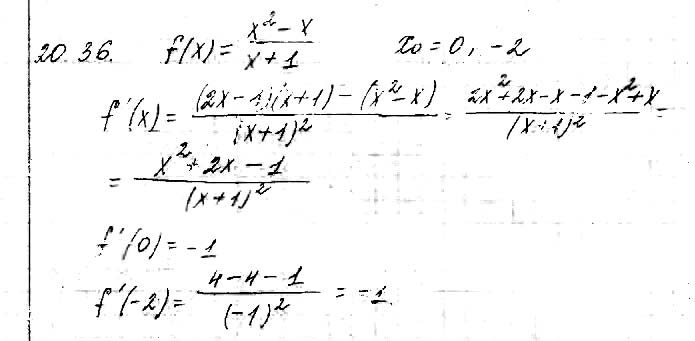 20.36. f(x) = (x² - x)/(x + 1) x₀ = 0, -2
f'(x) = ((2x - 1)(x + 1) - (x² - x))/(x + 1)² = (2x² + 2x - x - 1 - x² + x)/(x + 1)² =
= (x² + 2x - 1)/(x + 1)²
f'(0) = -1
f'(-2) = (4 - 4 - 1)/(-1)² = -1